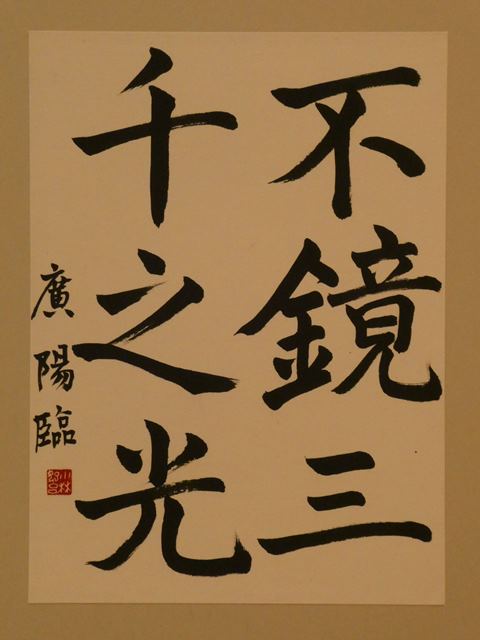 不鏡三
千之光
廣陽臨